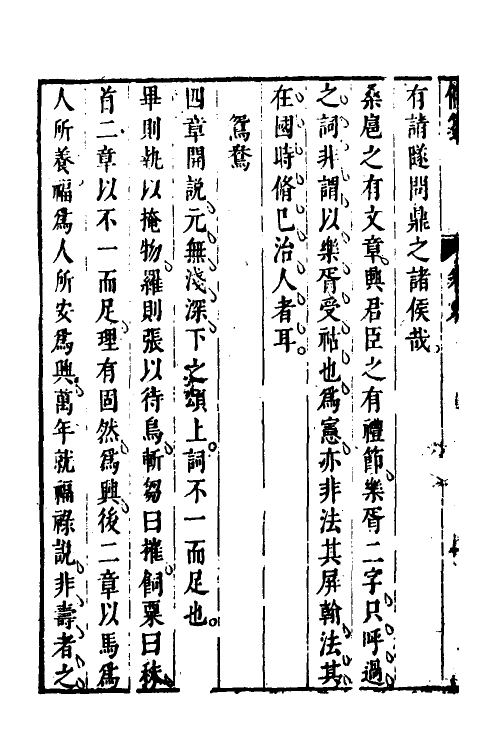 有請隧問鼎之諸侯哉
桑扈之有文章興君臣之有禮節樂胥二字只呼過
之詞非謂以樂胥受祜也為憲亦非法其屏翰法其
在國時脩已治人者耳
鴛鴦
四章開說元無淺深下之頌上詞不一而足也
畢則執以掩物羅則張以待鳥斬芻曰摧飼粟曰秣
首二章以不一而足理有固然為興後二章以馬為
人所養福為人所安為興萬年就福祿說非壽者之